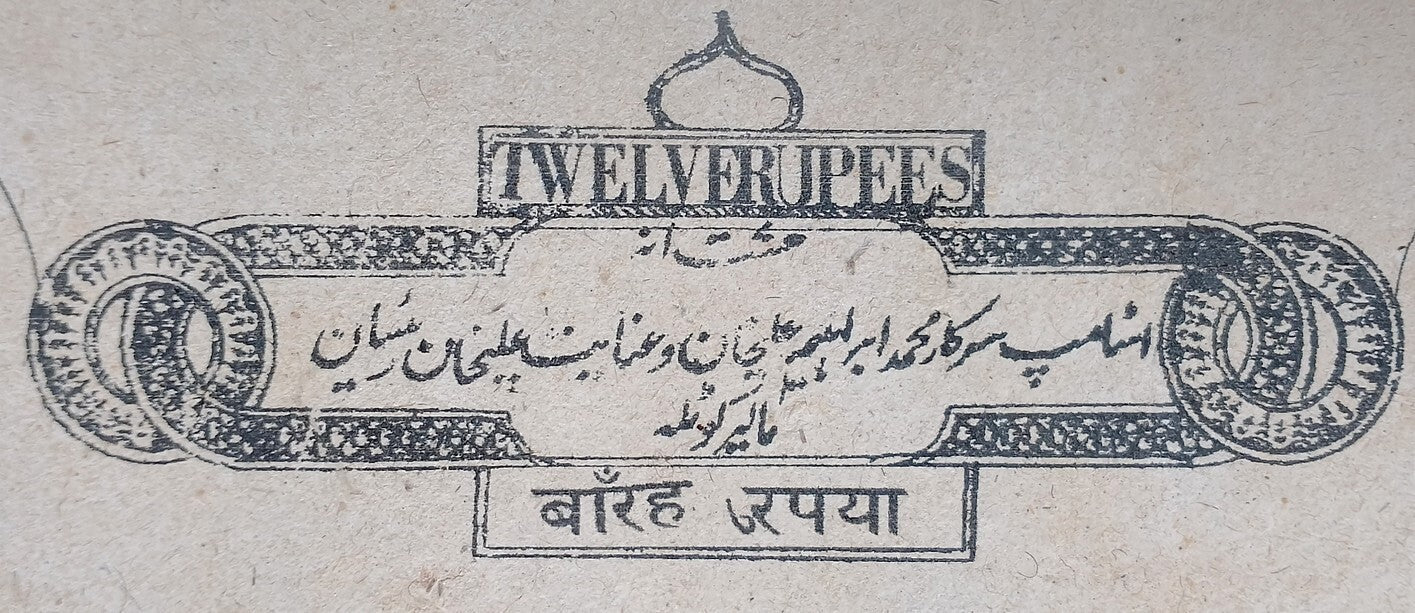 TWELVE RUPEES
اسٹامپ سرکار محمد ابراہیم علیخان و عنایت علیخان رئیسان
مالیرکوٹلہ
बाँरह ुरपया